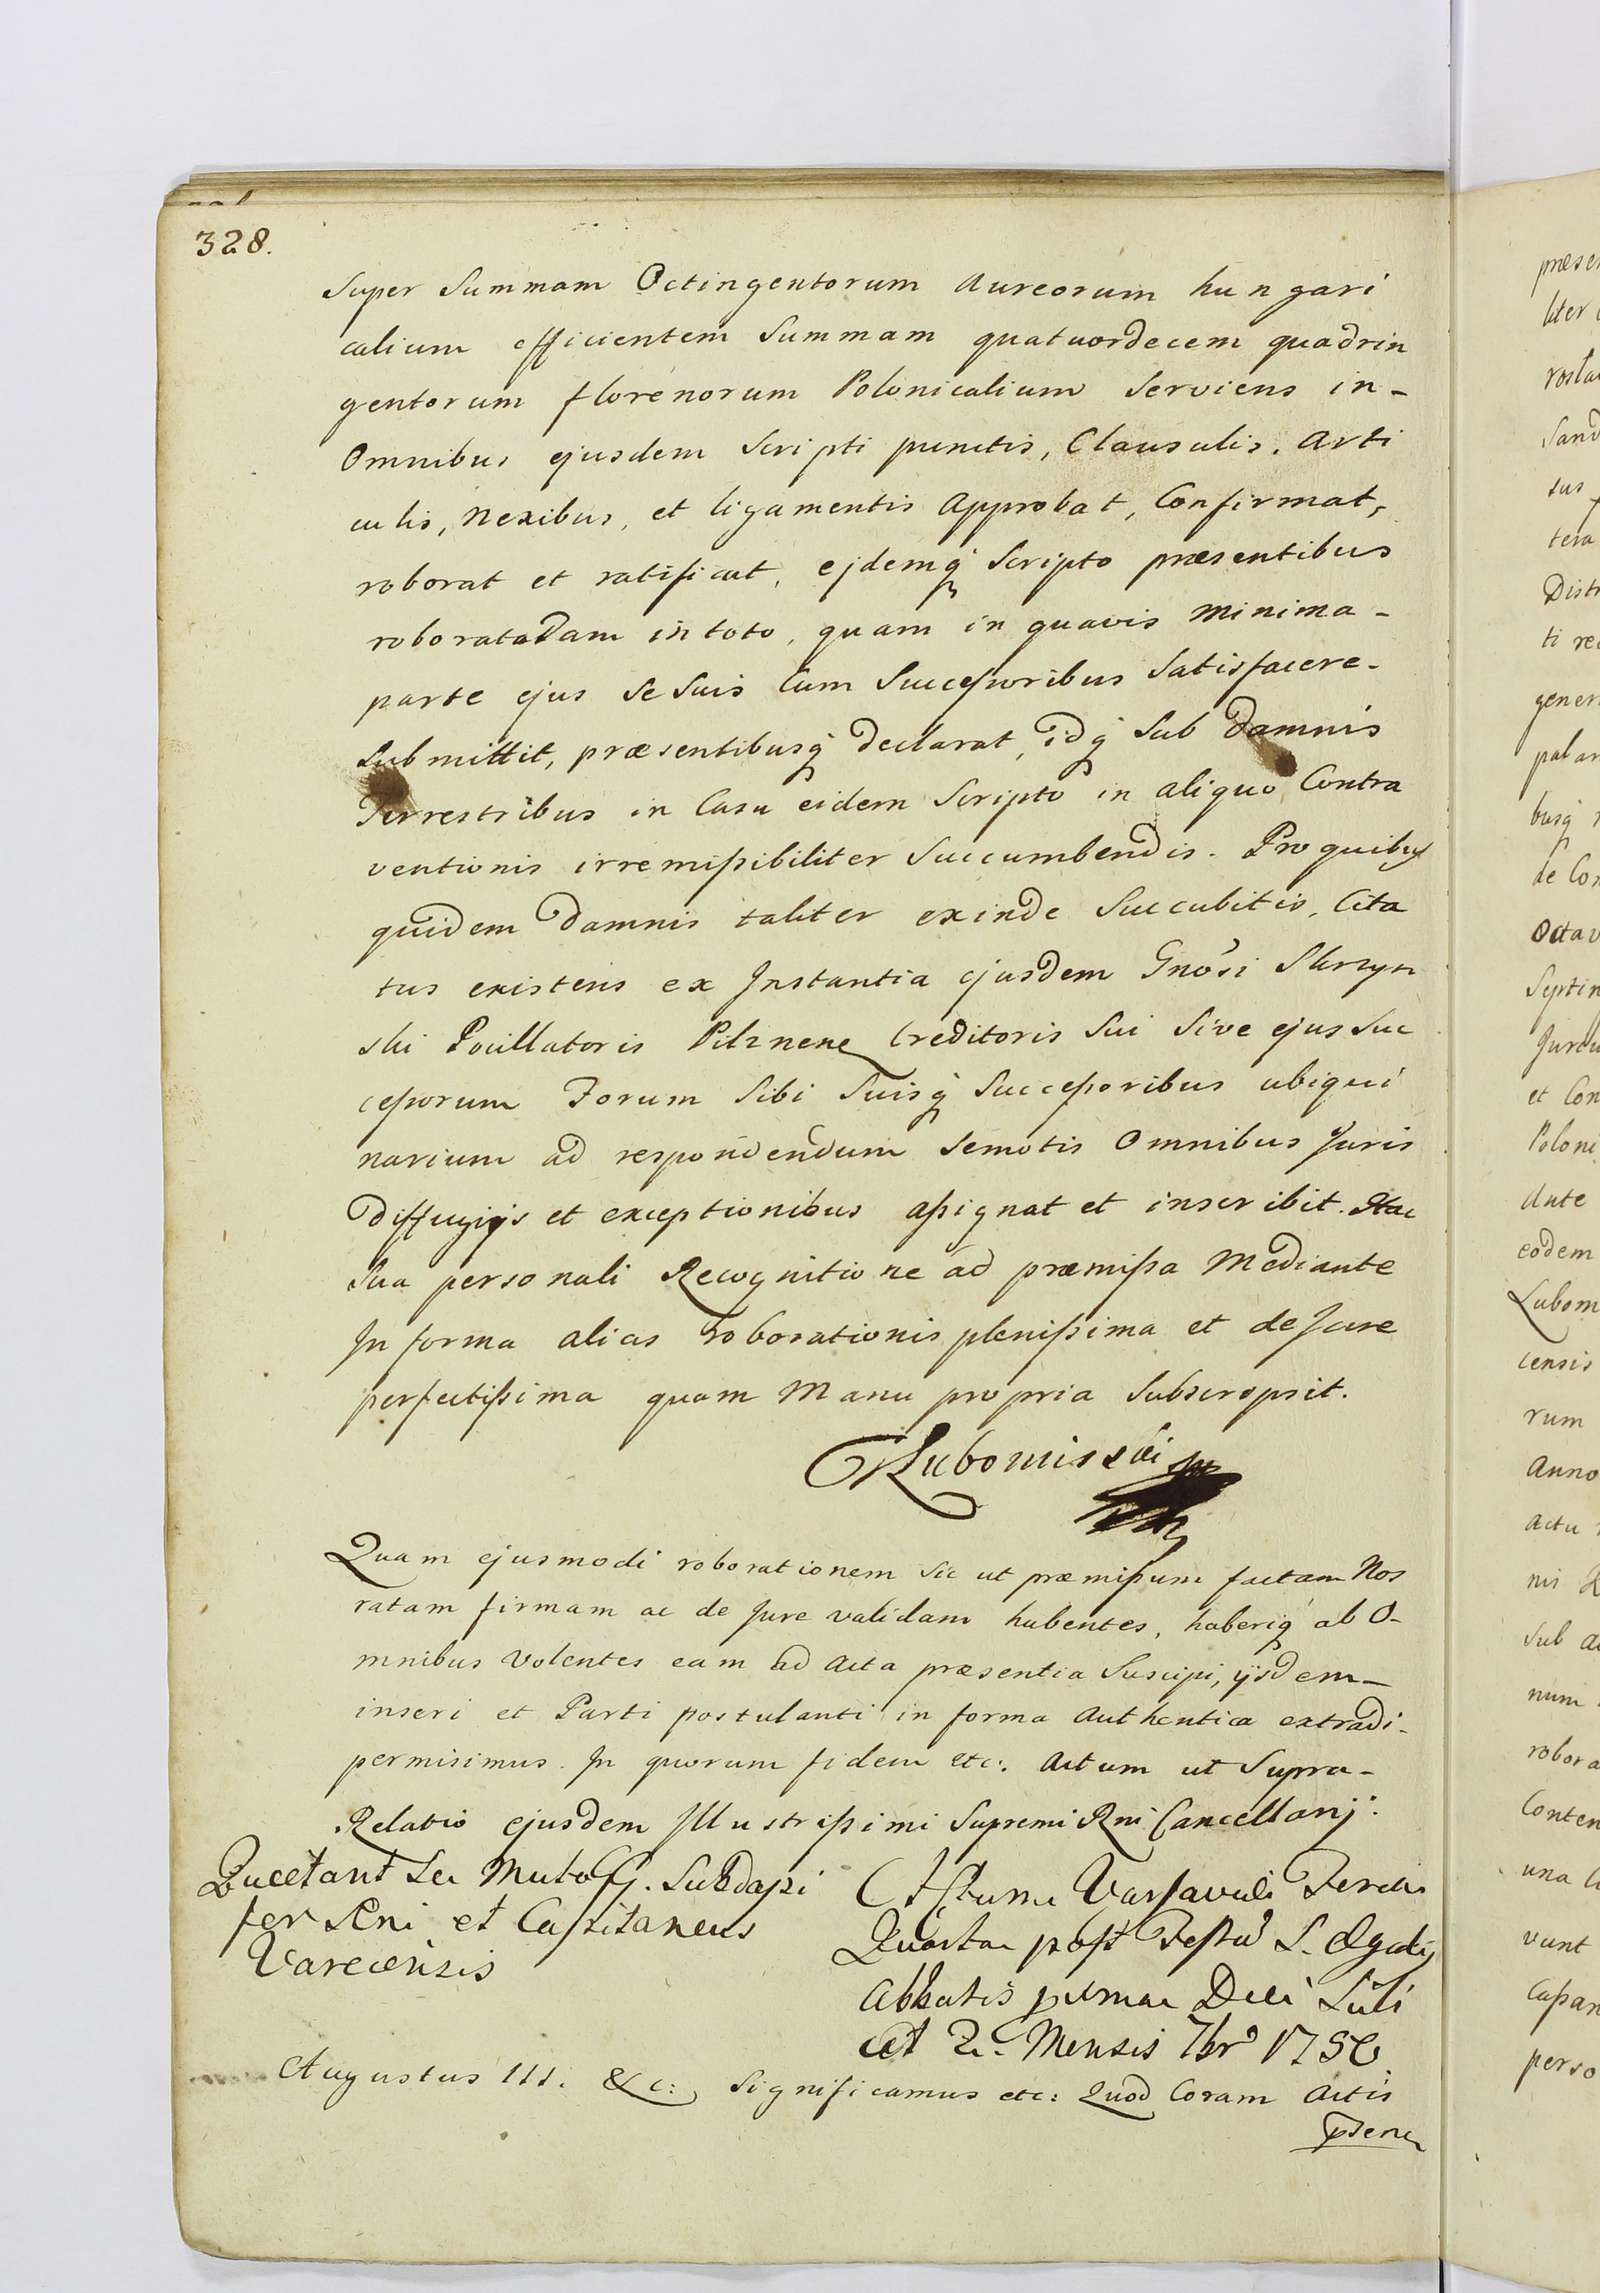 328.
Super Summam Octingentorum Aureorum hungari
calium efficientem Summam quatuordecem quadrin
gentorum florenorum Polonicalium Serviens in-
Omnibus ejusdem Scripti punctis, Clausulis, Arti
culis, Nexibus, et ligamentis Approbat, Confirmat,
roborat et ratificat, ejdemq̃ Scripto præsentibus
roborato tam in toto, quam in quavis minima-
parte ejus Se Suis Cum Successoribus Satisfacere-
Submittit, præsentibusq̃ declarat, idq̃ Sub damnis
Terrestribus in Casu eidem Scripto in aliquo Contra
ventionis irremissibiliter Succumbendis. Pro quibus
quidem damnis taliter exinde Succubitis, Cita
tus existens ex Instantia ejusdem Gnosi Skrzyn
ski Pocillatoris Pilznen Creditoris Sui Sive ejus Suc
cessorum Forum Sibi Suisq̃ Successoribus ubiqui
narium ad respondendum Semotis Omnibus Juris
diffugijs et exceptionibus assignat et inscribit. Hac
Sua personali Recognitione ad præmissa Mediante
In forma alias roborationis plenissima et de Jure
perfectissima quam Manu propria Subscripsit.
Lubomirski
Quam ejusmodi roborationem Sic ut præmissum factam Nos
ratam firmam ac de Jure validam habentes, haberiq̃ ab O-
mnibus Volentes eam ad Acta præsentia Suscipi, ijsdem-
inseri et Parti postulanti in forma Authentica extradi-
permisimus. In quorum fidem etc: Actum ut Supra-
Relatio ejusdem Illustrissimi Supremi Rni Cancellarij.
Subdapi
fer Rni et Capitaneus
Varecensis
Actum Varsaviæ Feria
Quarta post Festũ S. Egidij
Abbatis prima Die Suli
cet 2. Mensis 7br̃
Augustus III. &c: Significamus etc: Quod Coram Actis